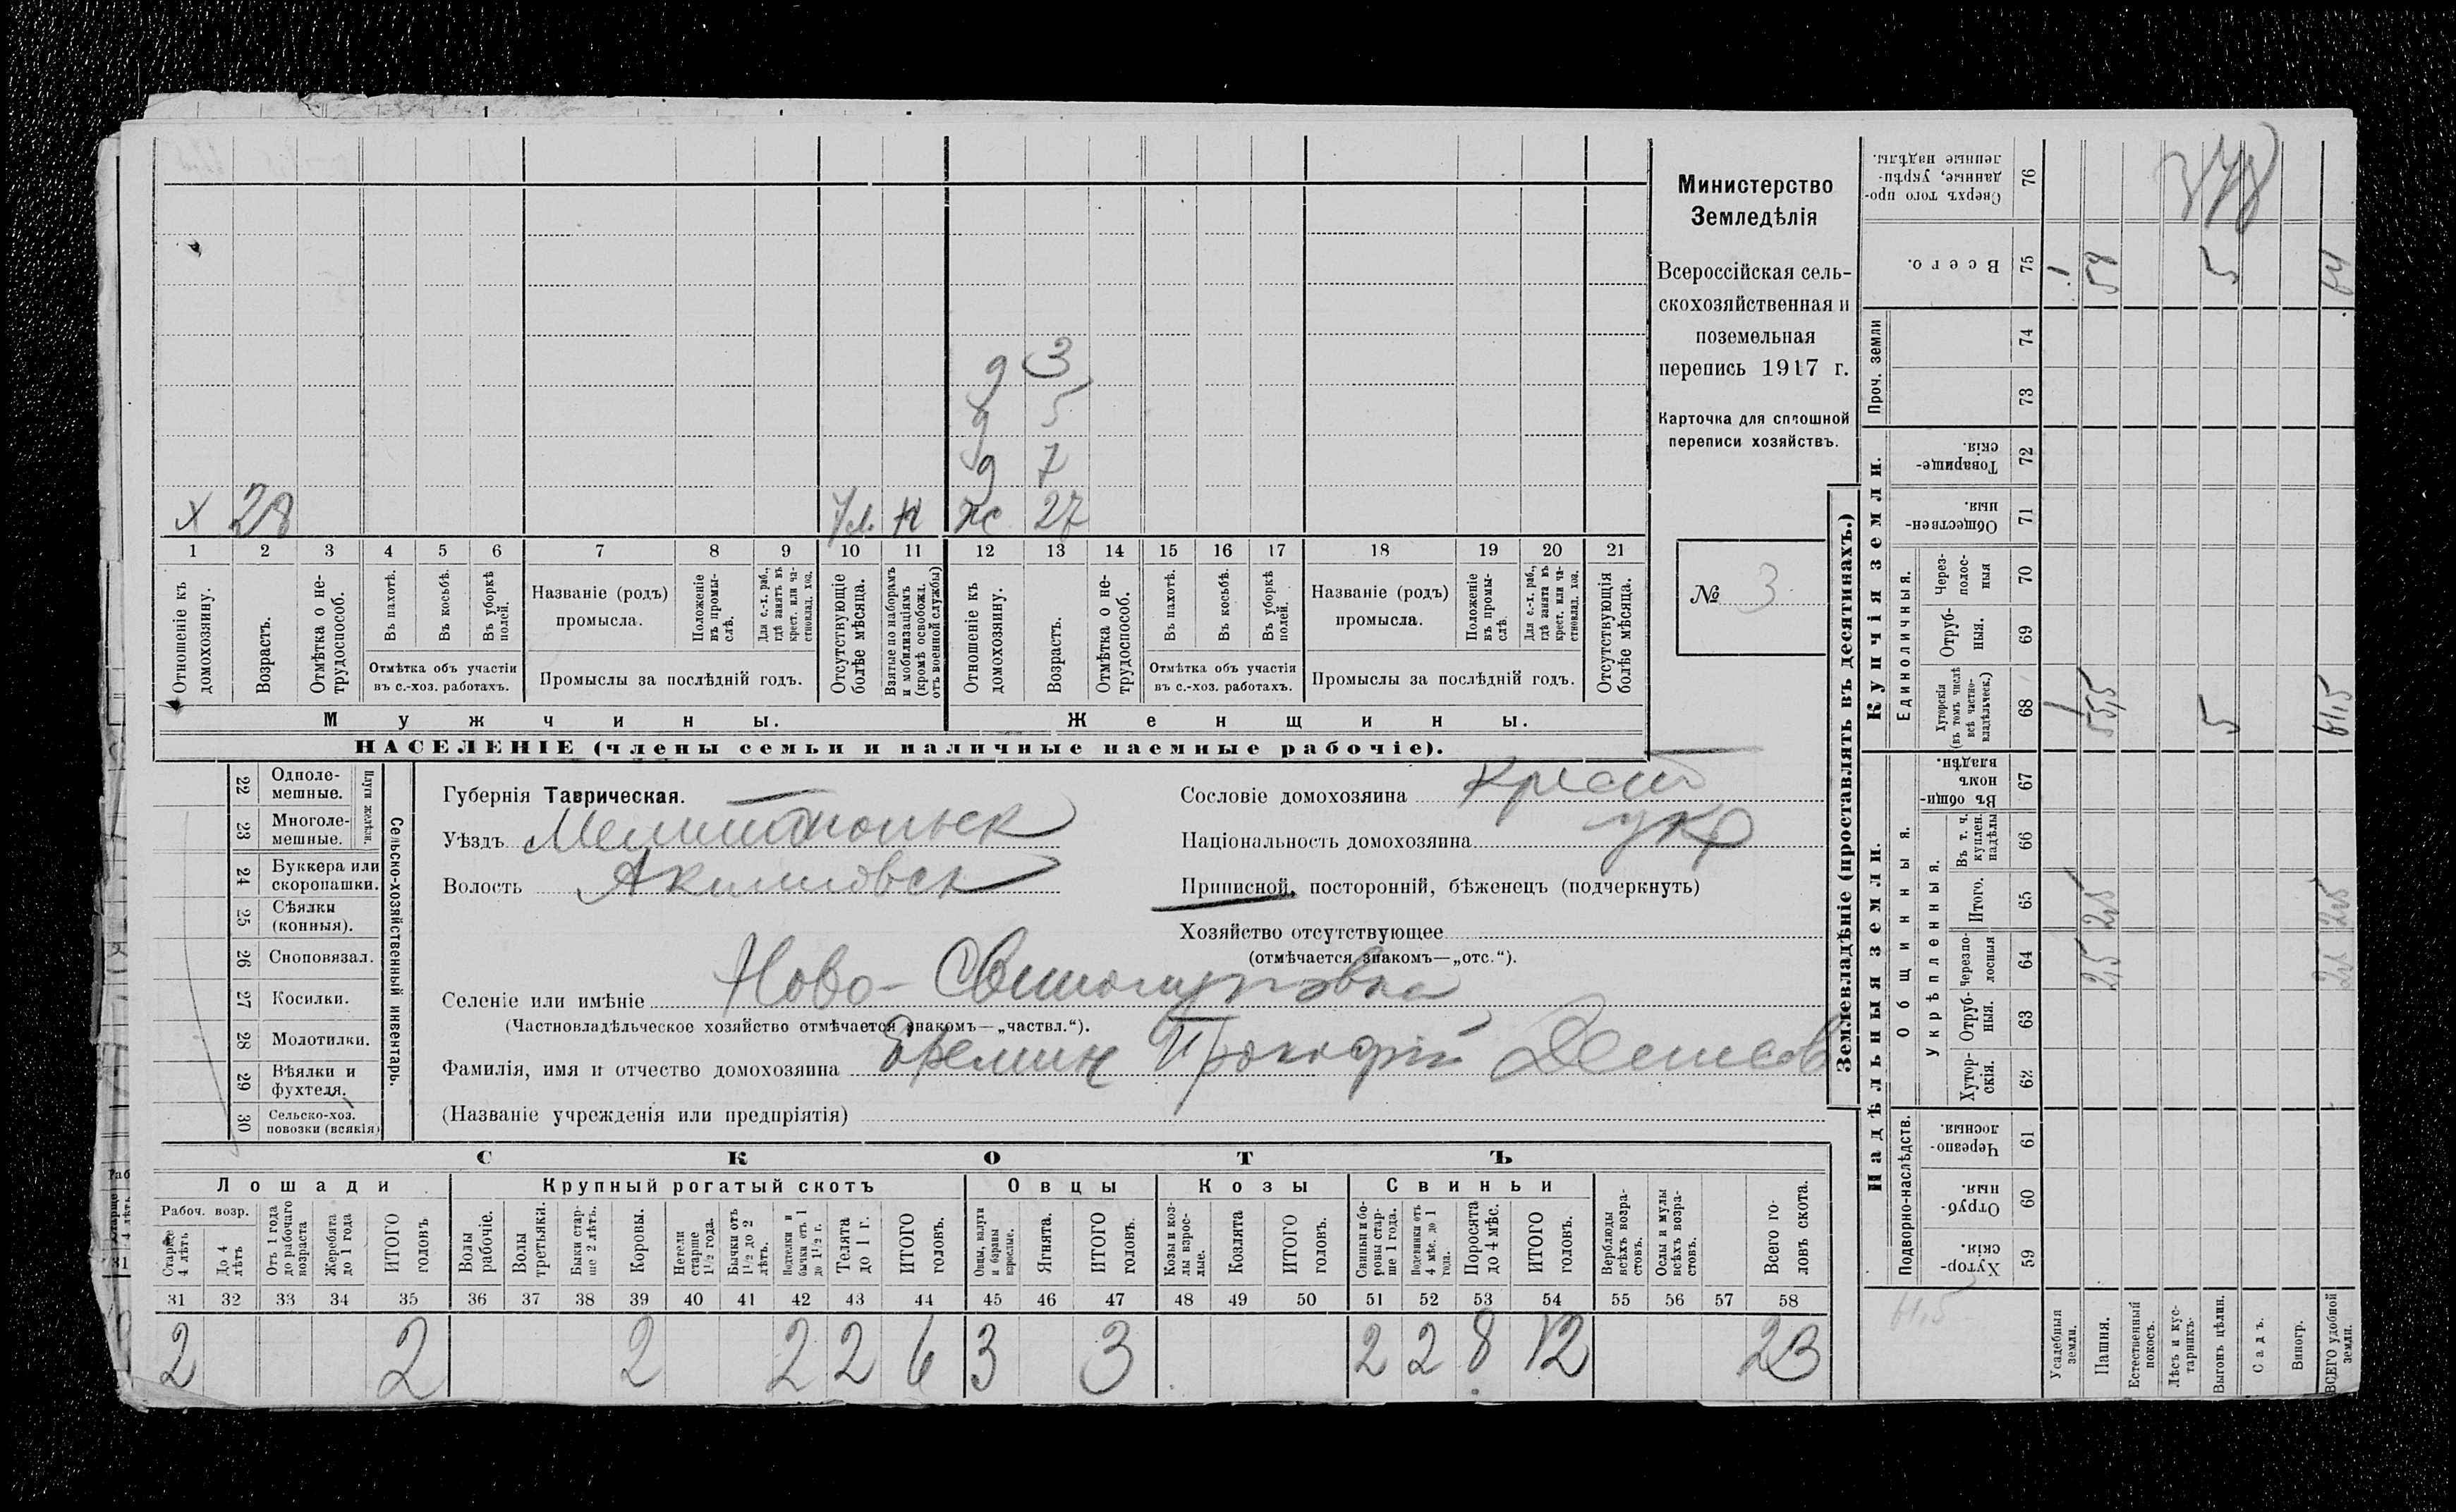 Министерство
Земледѣлія
Всероссійская сель-
скохозяйственная и
поземельная
перепись 1917 г.
Карточка для сплошной
переписи хозяйствъ.
№ 3
д 3
д 5
д 7
х 28 н ж 27
1 2 3 4 5 6 7 8 9 10 11 12 13 14 15 16 17 18 19 20 21
Отношеніе къ домохозяину.
Возрастъ.
Отмѣтка о не-трудоспособ.
Въ пахотѣ.
Въ косьбѣ.
Въ уборкѣ полей.
Отмѣтка объ участіи въ с.-хоз. работахъ.
Названіе (родъ) промысла.
Положеніе въ промы-слѣ.
Для с.-х. раб., гдѣ занятъ въ крест. или ча-стновлад. хоз.
Промыслы за послѣдній годъ.
Отсутствующіе болѣе мѣсяца.
Взятые по наборамъ и мобилизаціямъ (кромѣ освобожд. отъ военной службы)
Отношеніе къ домохозяину.
Возрастъ.
Отмѣтка о не-трудоспособ.
Въ пахотѣ.
Въ косьбѣ.
Въ уборкѣ полей.
Отмѣтка объ участіи въ с.-хоз. работахъ.
Названіе (родъ) промысла.
Положеніе въ промы-слѣ.
Для с.-х. раб., гдѣ занята въ крест. или ча-стновлад. хоз.
Промыслы за послѣдній годъ.
Отсутствующія болѣе мѣсяца.
Мужчины. Женщины.
НАСЕЛЕНІЕ (члены семьи и наличные наемные рабочіе).
Сельско-хозяйственный инвентарь.
Плуги желѣзн.
22 Одноле-мешные.
23 Многоле-мешные.
24 Буккера или скоропашки.
25 Сѣялки (конныя).
26 Сноповязал.
27 Косилки.
28 Молотилки.
29 Вѣялки и фухтеля.
30 Сельско-хоз. повозки (всякія)
Губернія Таврическая.
Уѣздъ Мелитопольск
Волость Акимовск
Сословіе домохозяина крест
Національность домохозяина укр
Приписной, посторонній, бѣженецъ (подчеркнуть)
Хозяйство отсутствующее
(отмѣчается знакомъ—„отс.“).
Селеніе или имѣніе Ново-
(Частновладѣльческое хозяйство отмѣчается знакомъ—„частвл.“).
Фамилія, имя и отчество домохозяина Еремин Прокофій Денисов
(Названіе учрежденія или предпріятія)
СКОТЪ
Лошади Крупный рогатый скотъ Овцы Козы Свиньи
Рабоч. возр.
Старше 4 лѣтъ
До 4 лѣтъ
Отъ 1 года до рабочаго возраста
Жеребята до 1 года
ИТОГО головъ
Волы рабочіе.
Волы третьяки.
Быки стар-ше 2 лѣтъ.
Коровы.
Нетели старше 1½ года.
Бычки отъ 1½ до 2 лѣтъ.
Подтелки и бычки отъ 1 до 1½ г.
Телята до 1 г.
ИТОГО головъ.
Овцы, валухи и бараны взрослые.
Ягнята.
ИТОГО головъ.
Козы и коз-лы взрос-лые.
Козлята
ИТОГО головъ.
Свиньи и бо-ровы стар-ше 1 года.
Подсвинки отъ 4 мѣс. до 1 года.
Поросята до 4 мѣс.
ИТОГО головъ.
Верблюды всѣхъ возра-стовъ.
Ослы и мулы всѣхъ возра-стовъ.
Всего го-ловъ скота.
31 32 33 34 35 36 37 38 39 40 41 42 43 44 45 46 47 48 49 50 51 52 53 54 55 56 57 58
2 2 2 2 2 6 3 3 2 2 8 12 23
Землевладѣніе (проставлять въ десятинахъ.)
Надѣльныя земли. Купчія земли. Проч. земли
Подворно-наслѣдств.
Общинныя.
Укрѣпленныя.
Единоличныя.
59 Хутор-скія.
60 Отруб-ныя.
61 Черезпо-лосныя.
62 Хутор-скія.
63 Отруб-ныя.
64 Черезпо-лосныя
65 Итого.
66 Въ т. ч. куплен. надѣлы
67 Въ общин-номъ владѣн.
68 Хуторскія (въ томъ числѣ всѣ частно-владѣльческ.)
69 Отруб-ныя.
70 Через-полос-ныя
71 Обществен-ныя.
72 Товарище-скія.
73
74
75 Всего.
76 Сверхъ того про-данные, укрѣп-ленные надѣлы.
Усадебныя земли. 1 1
Пашня. 2,5 2,5 55,5
Естественный покосъ.
Лѣсъ и кус-тарникъ.
Выгонъ цѣлин. 5 5
Садъ.
Виногр.
ВСЕГО удобной земли. 2,5 2,5 61,5 64